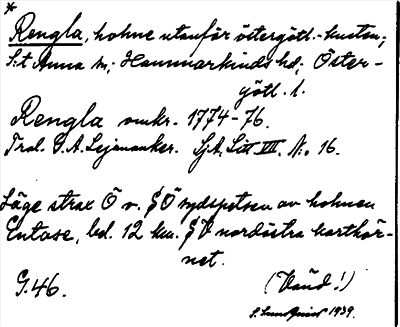 *
Rengla, holme utanför östergötl.-kusten;
S:t Anna sn, Hammarkinds hd, Öster-
götl. l.
Rengla omkr. 1774-76.
Trol. G. A. Lejonanker. Sjk, Litt VII, No, 16.
Läge strax Ö v. SÖ sydspetsen av holmen
Entase, bel. 12 km. SV nordöstra karthör-
net.
G. 46.
(Vänd!)
S. Lundquist 1939.